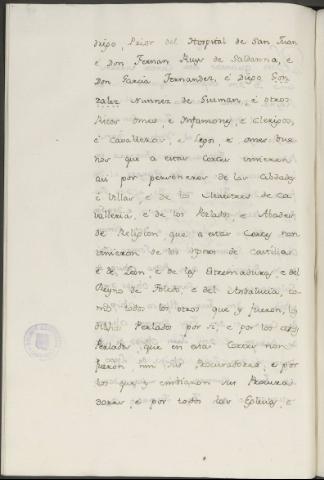 drigo, Prior del Hospital de San Juan
é Don Fernan Ruys de Saldanna, é
Don Garcia Fernandez, é Diego Gon
zalez Nunnez de Guzman, é otros
Ricos omes, é Infanzones, é clerigos,
é Cavalleros, é legos, é omes bue
nos que a estas Cortes vinieron
asi por personeros de las Cibdades
é Villas, é de los Maestres de Ca
valleria, é de los Perlados, é Abades
de Religion, que a estas Cortes non
vinieron de los Regnos de Castilla
é de Leon, é de las Estremaduras, é del
Regno de Toledo, é del Andalucia, co
mo todos los otros que y fueron, los
dichos Perlados por si, é por los otros
Perlados, que en estas Cortes non
fueron, nin sus Procuradores, é por
los que y embiaron sus Procura
dores, é por todas las Eglesias, é